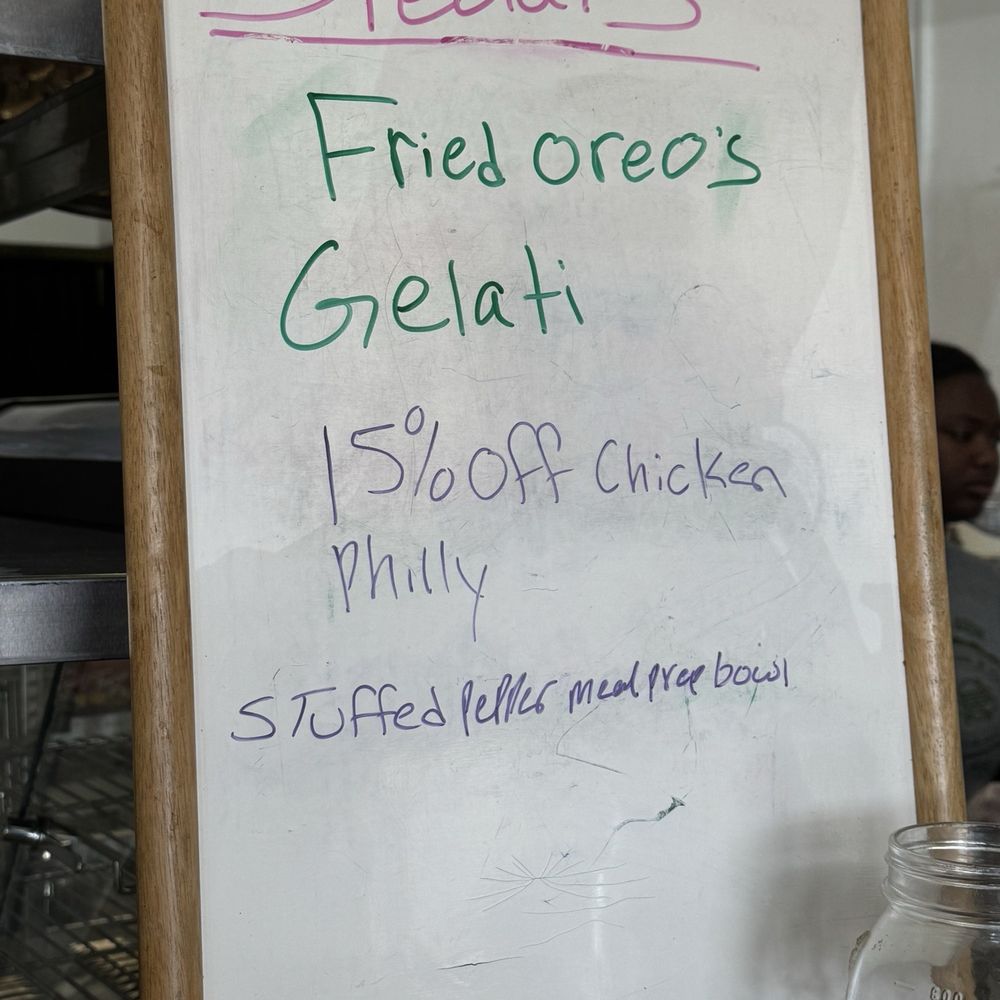 Specials
Fried oreo's
Gelati
15% off Chicken
Philly
Stuffed pepper meal prep bowl